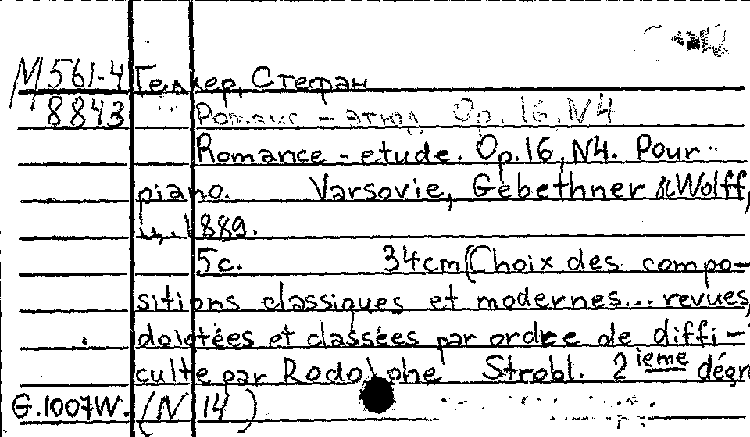 М561-4 Геллер, Стефан
8843 Романс - этюд. Op. 16, N4
Romance - etude. Op. 16, N4. Pour
piano. Varsovie, Gebethner & Wolff,
ц. 1889.
5c. 34cm (Choix des compo-
sitions classiques et modernes... revues,
doigtées et classées par ordre de diffi-
culte par Rodolphe Strobl. 2 ieme degr
G.1007W. (N 14)